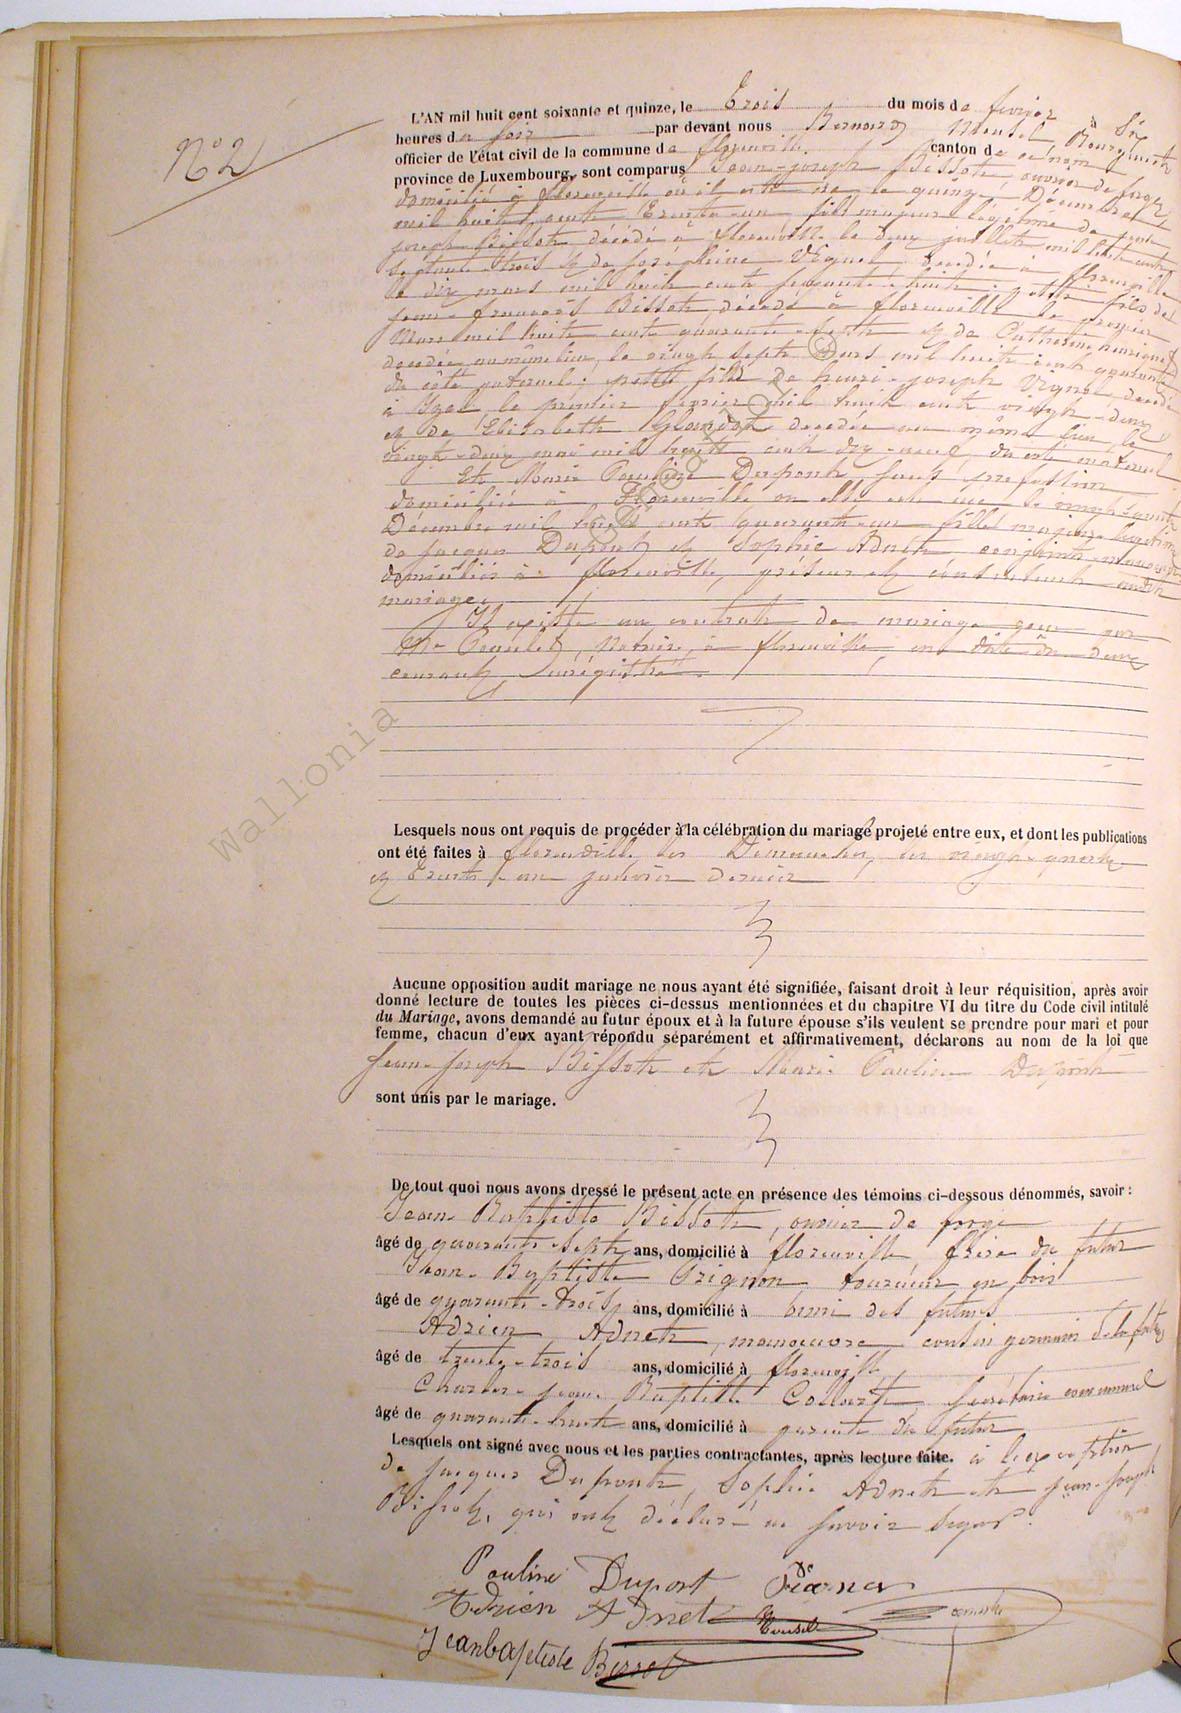 N° 2
L'AN mil huit cent soixante et quinze, le Trois du mois de fevrier à Six
heures du soir par devant nous Bernard Mousel Bourgmestre
officier de l'état civil de la commune de florenville canton de ce nom
province de Luxembourg, sont comparus Jean-joseph Bissot ouvrier de forges
domicilié à florenville où il est né le quinze Décembre
mil huit cent Trente-un fils majeur légitime de
joseph Bissot décédé à florenville le deux juillet mil huit cent
septante-trois & de josephine Vignel décédée à florenville
le dix mars mil huit cent soixante-huit petit fils de
jean-françois Bissot décédé à florenville le premier
Mars mil huit cent quarante-sept & de Catherine
décédée au même lieu, le vingt sept Mars mil huit cent quarante
du côté paternel; petit fils De henri-joseph Vignel, décédé
à Izel, le premier fevrier mil huit cent vingt-deux
& de Elisabeth décédée au même lieu le
vingt-deux mai mil huit cent dix-neuf, du côté maternel
Et Marie Pauline Dupont sans profession
domiciliée à Florenville où elle est née le vingt-quatre
Decembre mil huit cent quarante-un fille majeure légitime
de jacques Dupont & Sophie Adnet, conjoints
domiciliés à florenville, présents & consentants audit
mariage.
Il existe un contrat de mariage reçu par
Me Notaire, à florenville, en date du deux
courant, enrégistré.
Lesquels nous ont requis de procéder à la célébration du mariage projeté entre eux, et dont les publications
ont été faites à florenville les Dimanches, les vingt-quatre
& Trente-un janvier dernier
Aucune opposition audit mariage ne nous ayant été signifiée, faisant droit à leur réquisition, après avoir
donné lecture de toutes les pièces ci-dessus mentionnées et du chapitre VI du titre du Code civil intitulé
du Mariage, avons demandé au futur époux et à la future épouse s'ils veulent se prendre pour mari et pour
femme, chacun d'eux ayant répondu séparément et affirmativement, déclarons au nom de la loi que
Jean-Joseph Bissot et Marie Pauline Dupont
sont unis par le mariage.
De tout quoi nous avons dressé le présent acte en présence des témoins ci-dessous dénommés, savoir :
Jean-Baptiste Bissot, ouvrier de forge
âgé de quarante-sept ans, domicilié à florenville frère du futur
Jean-Baptiste Grignon, tourneur en bois
âgé de quarante-trois ans, domicilié à ami des futurs
Adrien Adnet, manoeuvre cousin germain de la future
âgé de trente-trois ans, domicilié à florenville
Charles-jean-Baptiste Collarte, secrétaire communal
âgé de quarante-huit ans, domicilié à parent du futur
Lesquels ont signé avec nous et les parties contractantes, après lecture faite. à l'exception
de jacques Dupont, Sophie Adnet et jean-joseph
Bissot, qui ont déclaré ne savoir signer.
Pauline Dupont
Adrien Adnet Mousel
Jeanbaptiste Bissot
Wallonia